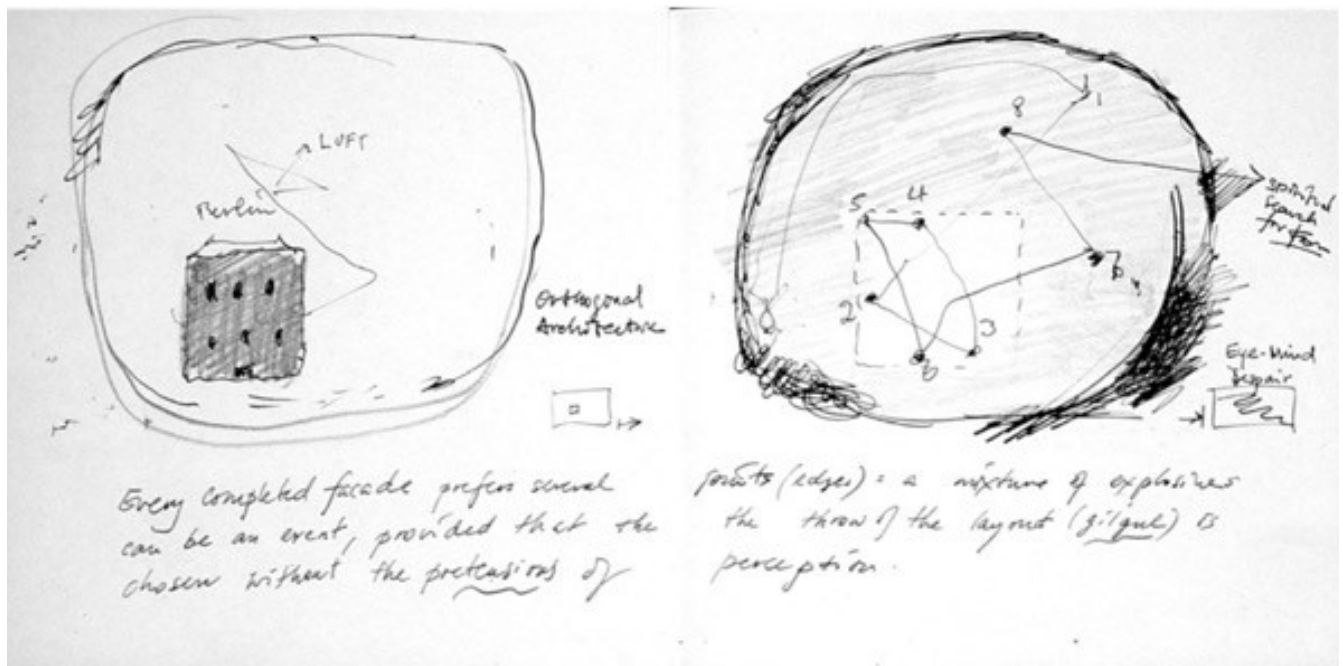 LUFT
Berlin
Orthogonal
Architecture
1
8
5
4
2
3
6
7
spiritual
search
for form
Eye-Mind
Despair
Every completed facade prefers several
can be an event, provided that the
chosen without the pretensions of
points (edges) = a mixture of explosives
the throw of the layout (gilgul) is
perception.